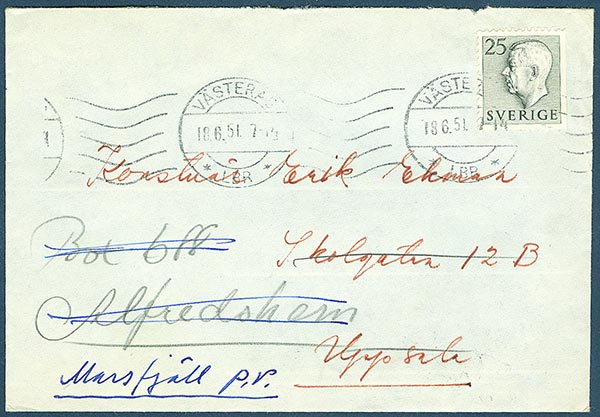 25
SVERIGE
VÄSTERÅS
18.6.51. 7-14
* 1 BR *
VÄSTERÅS
18.6.51. 7-14
* 1 BR *
Konstnär Erik Ekman
Skolgatan 12 B
Uppsala
Box 688
Alfredshem
Marsfjäll p.r.